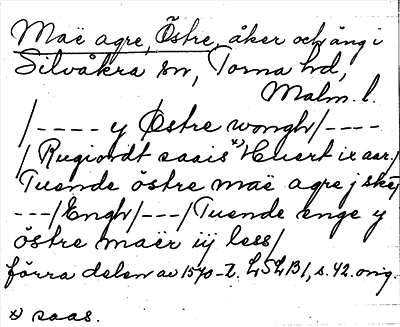 Maë agre, Östre, åker och äng i
Silvåkra sn, Torna hd,
Malm. l.
/---- y Østre wongh/----
/ Rugiordt saais x) Huert ix aar./
Tuende östre maë agre j ske/
---/Engh/---/Tuende enge y
östre maër iij less/
förra delen av 1570-t. LSLB1, s. 42. orig.
x) saas.